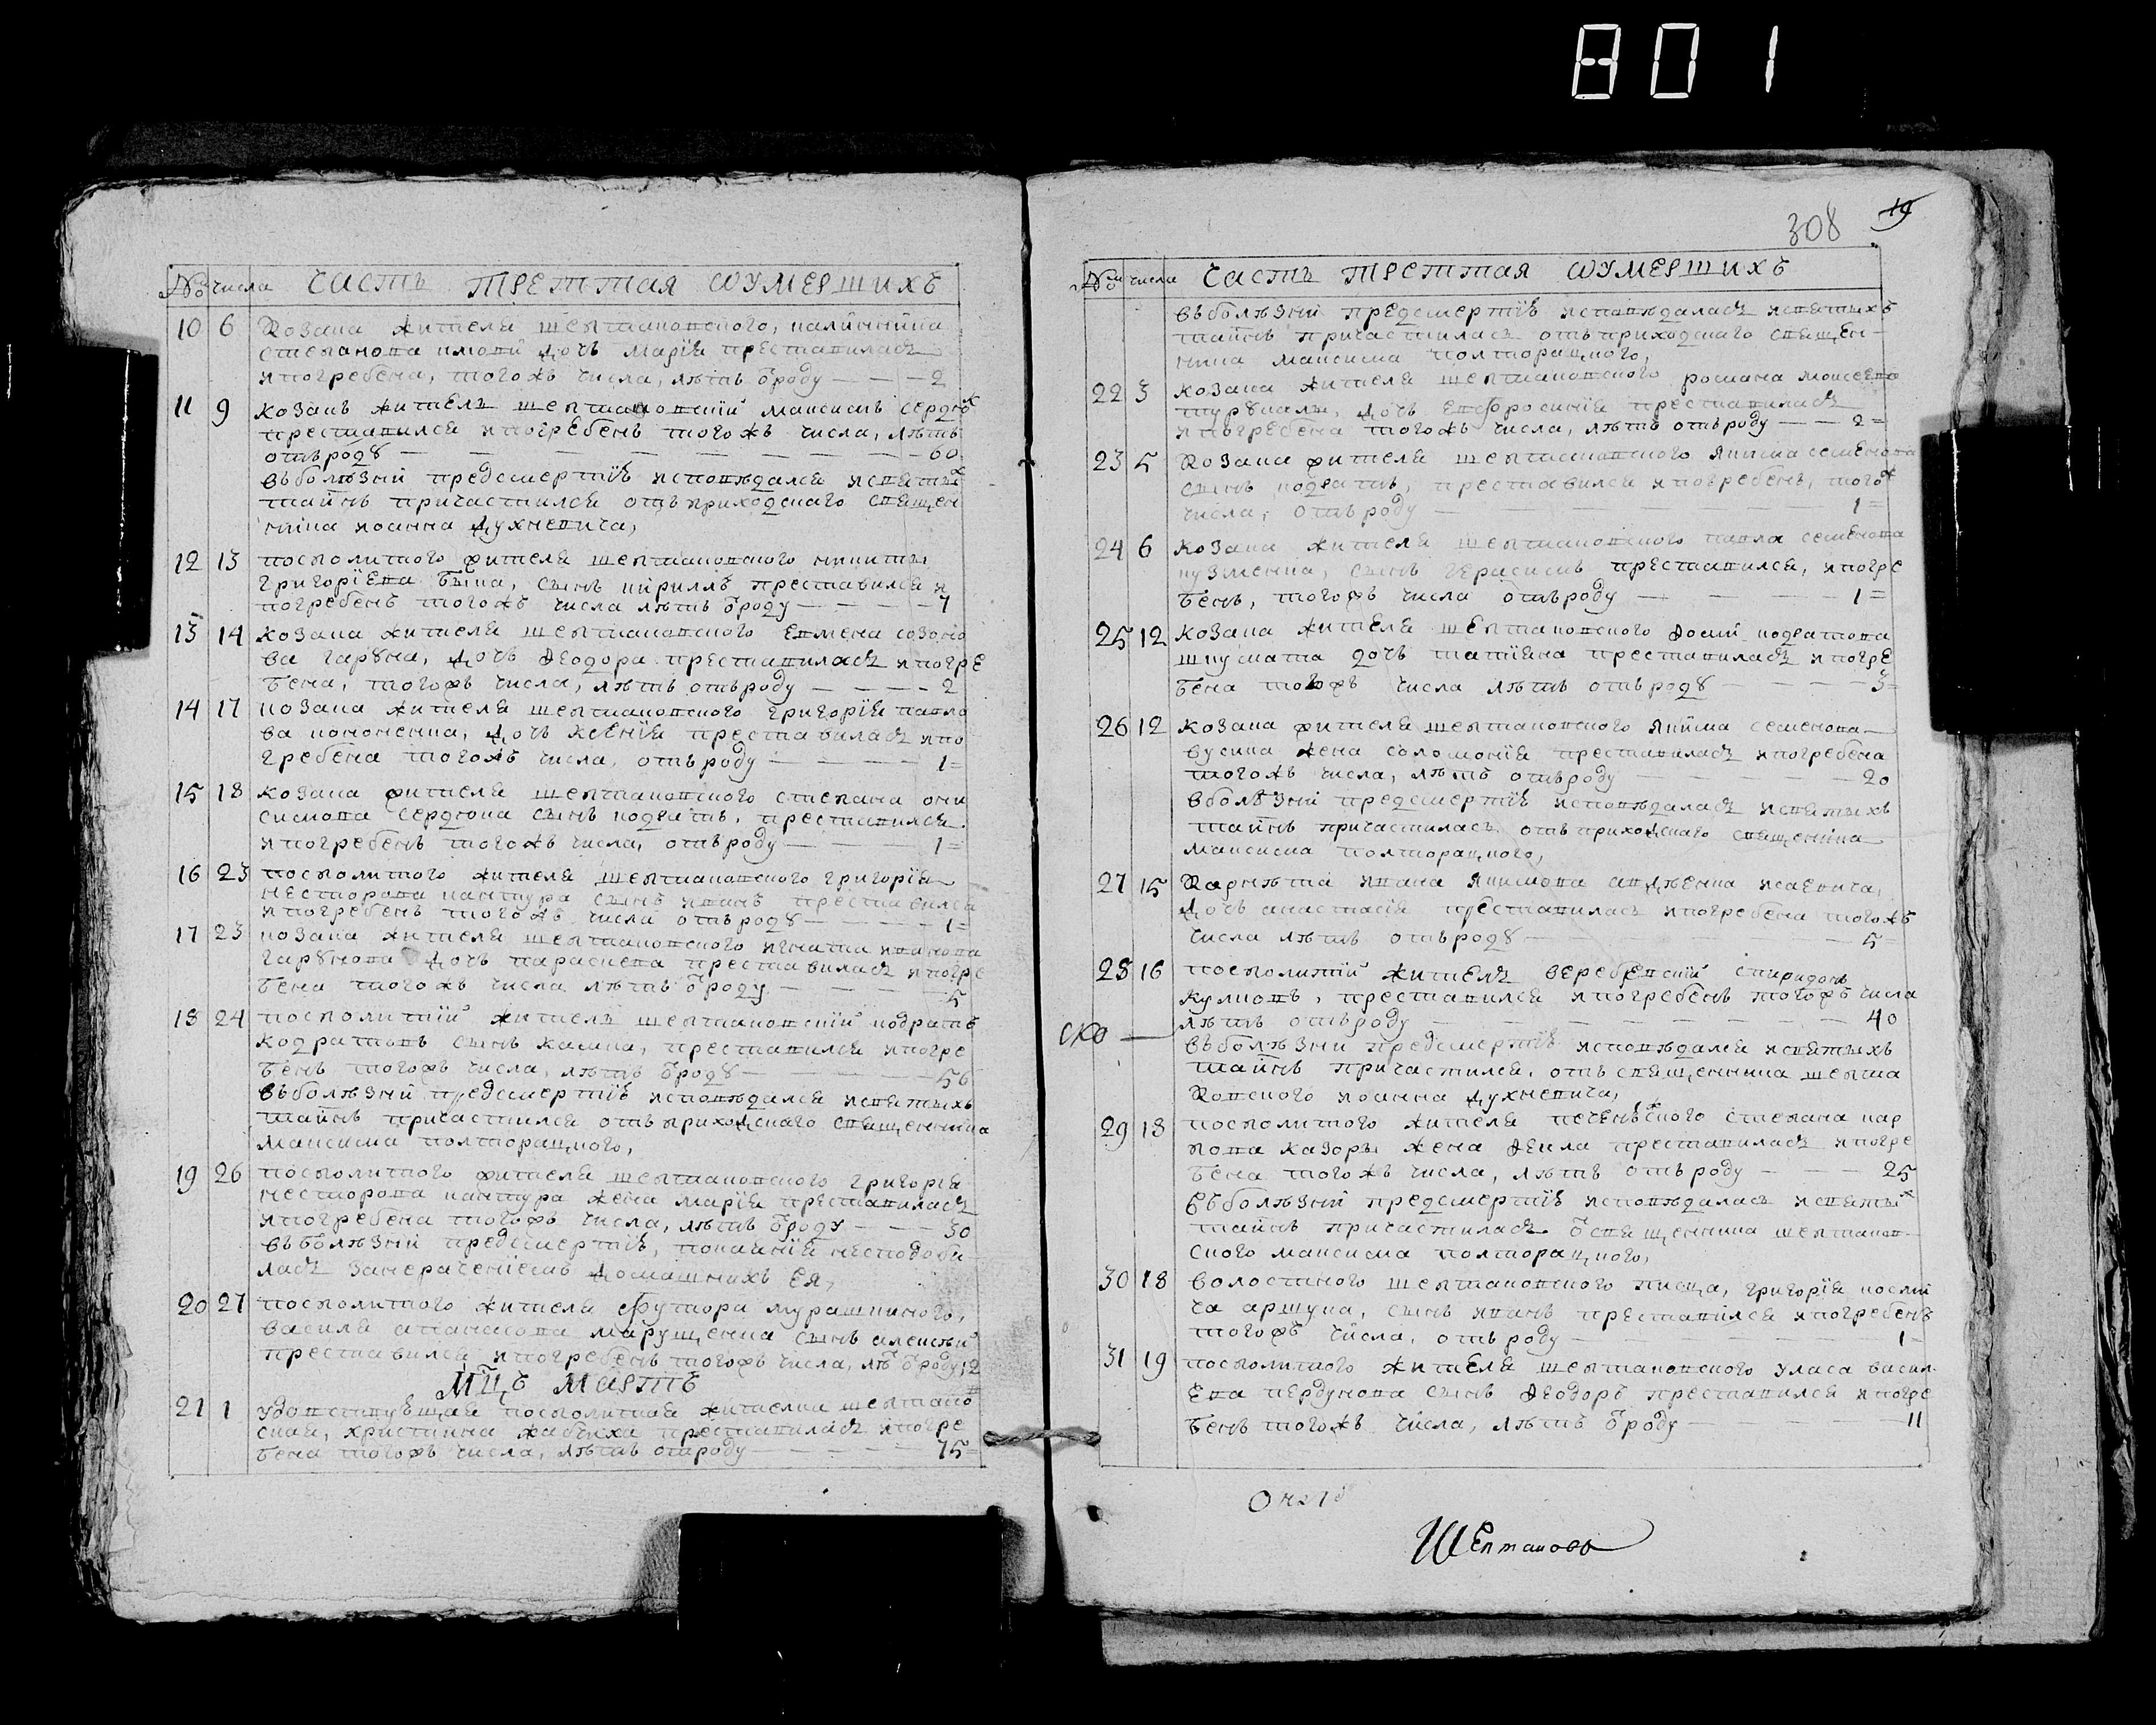 801
308 19
№ числа Часть треттая ѡумершихъ
10 6 Козака жителя шептаковского, калинника
степанова дочь Марія преставилась
и погребена, тогожъ числа, лѣтъ ѿроду — 2
11 9 козакъ житель шептаковскій максимъ сердюк
преставился и погребенъ тогожъ числа, лѣтъ
отъроду — 60
въболѣзни предсмертнѣ исповѣдался исвятых
тайнъ причастился отъ приходскаго священ
ника иоанна Духневича,
12 13 посполитого жителя шептаковского никиты
григоріева быка, сынъ кириллъ преставился и
погребенъ тогожъ числа лѣтъ ѿроду — 7
13 14 козака жителя шептаковского евмена созоно
ва гаркуна, дочь Феодора преставилась ипогре
бена, тогожъ числа, лѣтъ отъроду — 2
14 17 козака жителя шептаковского григорія павло
ва кононенка, дочь Ксенія преставилась ипо
гребена тогожъ числа, отъроду — 1=
15 18 козака жителя шептаковского степана они
симова Сердюка сынъ кодратъ, преставился
ипогребенъ тогожъ числа, отъроду — 1=
16 23 посполитого жителя шептаковского григорія
несторова кантура сынъ иванъ преставился
ипогребенъ тогожъ числа отъроду — 1=
17 23 козака жителя шептаковского игната иванова
гаркунова дочь параскева преставилась ипогре
бена тогожъ числа лѣтъ ѿроду — 5
18 24 посполитій житель шептаковскій кодратъ
кодратовъ сынъ касика, преставился ипогре
бенъ тогожъ числа, лѣтъ ѿроду — 56
въболѣзни предсмертнѣ исповѣдался исвятыхъ
тайнъ причастился отъ приходскаго священника
Максима полторацкого,
19 26 посполитого жителя шептаковского григорія
несторова кантура жена марія преставилась
ипогребена тогожъ числа, лѣтъ ѿроду — 30
въболѣзни предсмертнѣ, покаянія несподоби
лась занераченіемъ домашнихъ ея,
20 27 посполитого жителя футора мурашкиного,
василя апанасова марущенка сынъ алексѣй
преставился ипогребенъ тогожъ числа, лѣ ѿроду 12
Мцъ Мартъ
21 1 удовствующая посполитая жителка шептаков
ская, христина жабчиха преставилась ипогре
бена тогожъ числа, лѣтъ отроду — 75=
№ числа Часть треттая ѡумершихъ
въболѣзни предсмертнѣ исповѣдалась исвятыхъ
тайнъ причастилась отъ приходскаго священ-
ника максима полторацкого,
22 3 козака жителя шептаковского романа моисеева
дочь Евфросинія преставилась
ипогребена тогожъ числа, лѣтъ отъроду — 2=
23 5 Козака жителя шептаковского Якима семенова
сынъ кодратъ, преставился ипогребенъ, тогож
числа, отъроду — 1=
24 6 козака жителя шептаковского павла семенова
кузменка, сынъ герасимъ преставился, ипогре
бенъ, тогожъ числа отъроду — 1=
25 12 козака жителя шептаковского кодратова
шкумата дочь татіяна преставилась ипогре
бена тогожъ числа лѣтъ отъроду — 3=
26 12 козака жителя шептаковского Якима семенова
бусика жена соломонія преставилась ипогребена
тогожъ числа, лѣтъ отъроду — 20
вболѣзни предсмертнѣ исповѣдалась исвятыхъ
тайнъ причастилась отъ приходскаго священика
максима полторацкого,
27 15 Карнѣта ивана Якимова исаевича,
дочь анастасія преставилась ипогребена тогожъ
числа лѣтъ отъроду — 5=
28 16 посполитій житель веребевскій спиридонъ
куликовъ, преставился ипогребенъ тогожъ числа
лѣтъ отъроду — 40
въболѣзни предсмертнѣ исповѣдался исвятыхъ
тайнъ причастился, отъ священника шепта
ковского иоанна духневича,
29 18 посполитого жителя печенѣского степана кар
пова казоры жена Фекла преставилась ипогре
бена тогожъ числа, лѣтъ отъроду — 25
въболѣзни предсмертнѣ исповѣдалась исвяты
тайнъ причастилась ѿ священника шептаков
ского максима полторацкого,
30 18 волостного шептаковского писца, григорія
аршука, сынъ иванъ преставился ипогребенъ
тогожъ числа, отъроду — 1=
31 19 посполитого жителя шептаковского уласа васил
ева пердунова сынъ Феодоръ преставился ипогре
бенъ тогожъ числа, лѣтъ ѿроду — 11
Шептаковъ